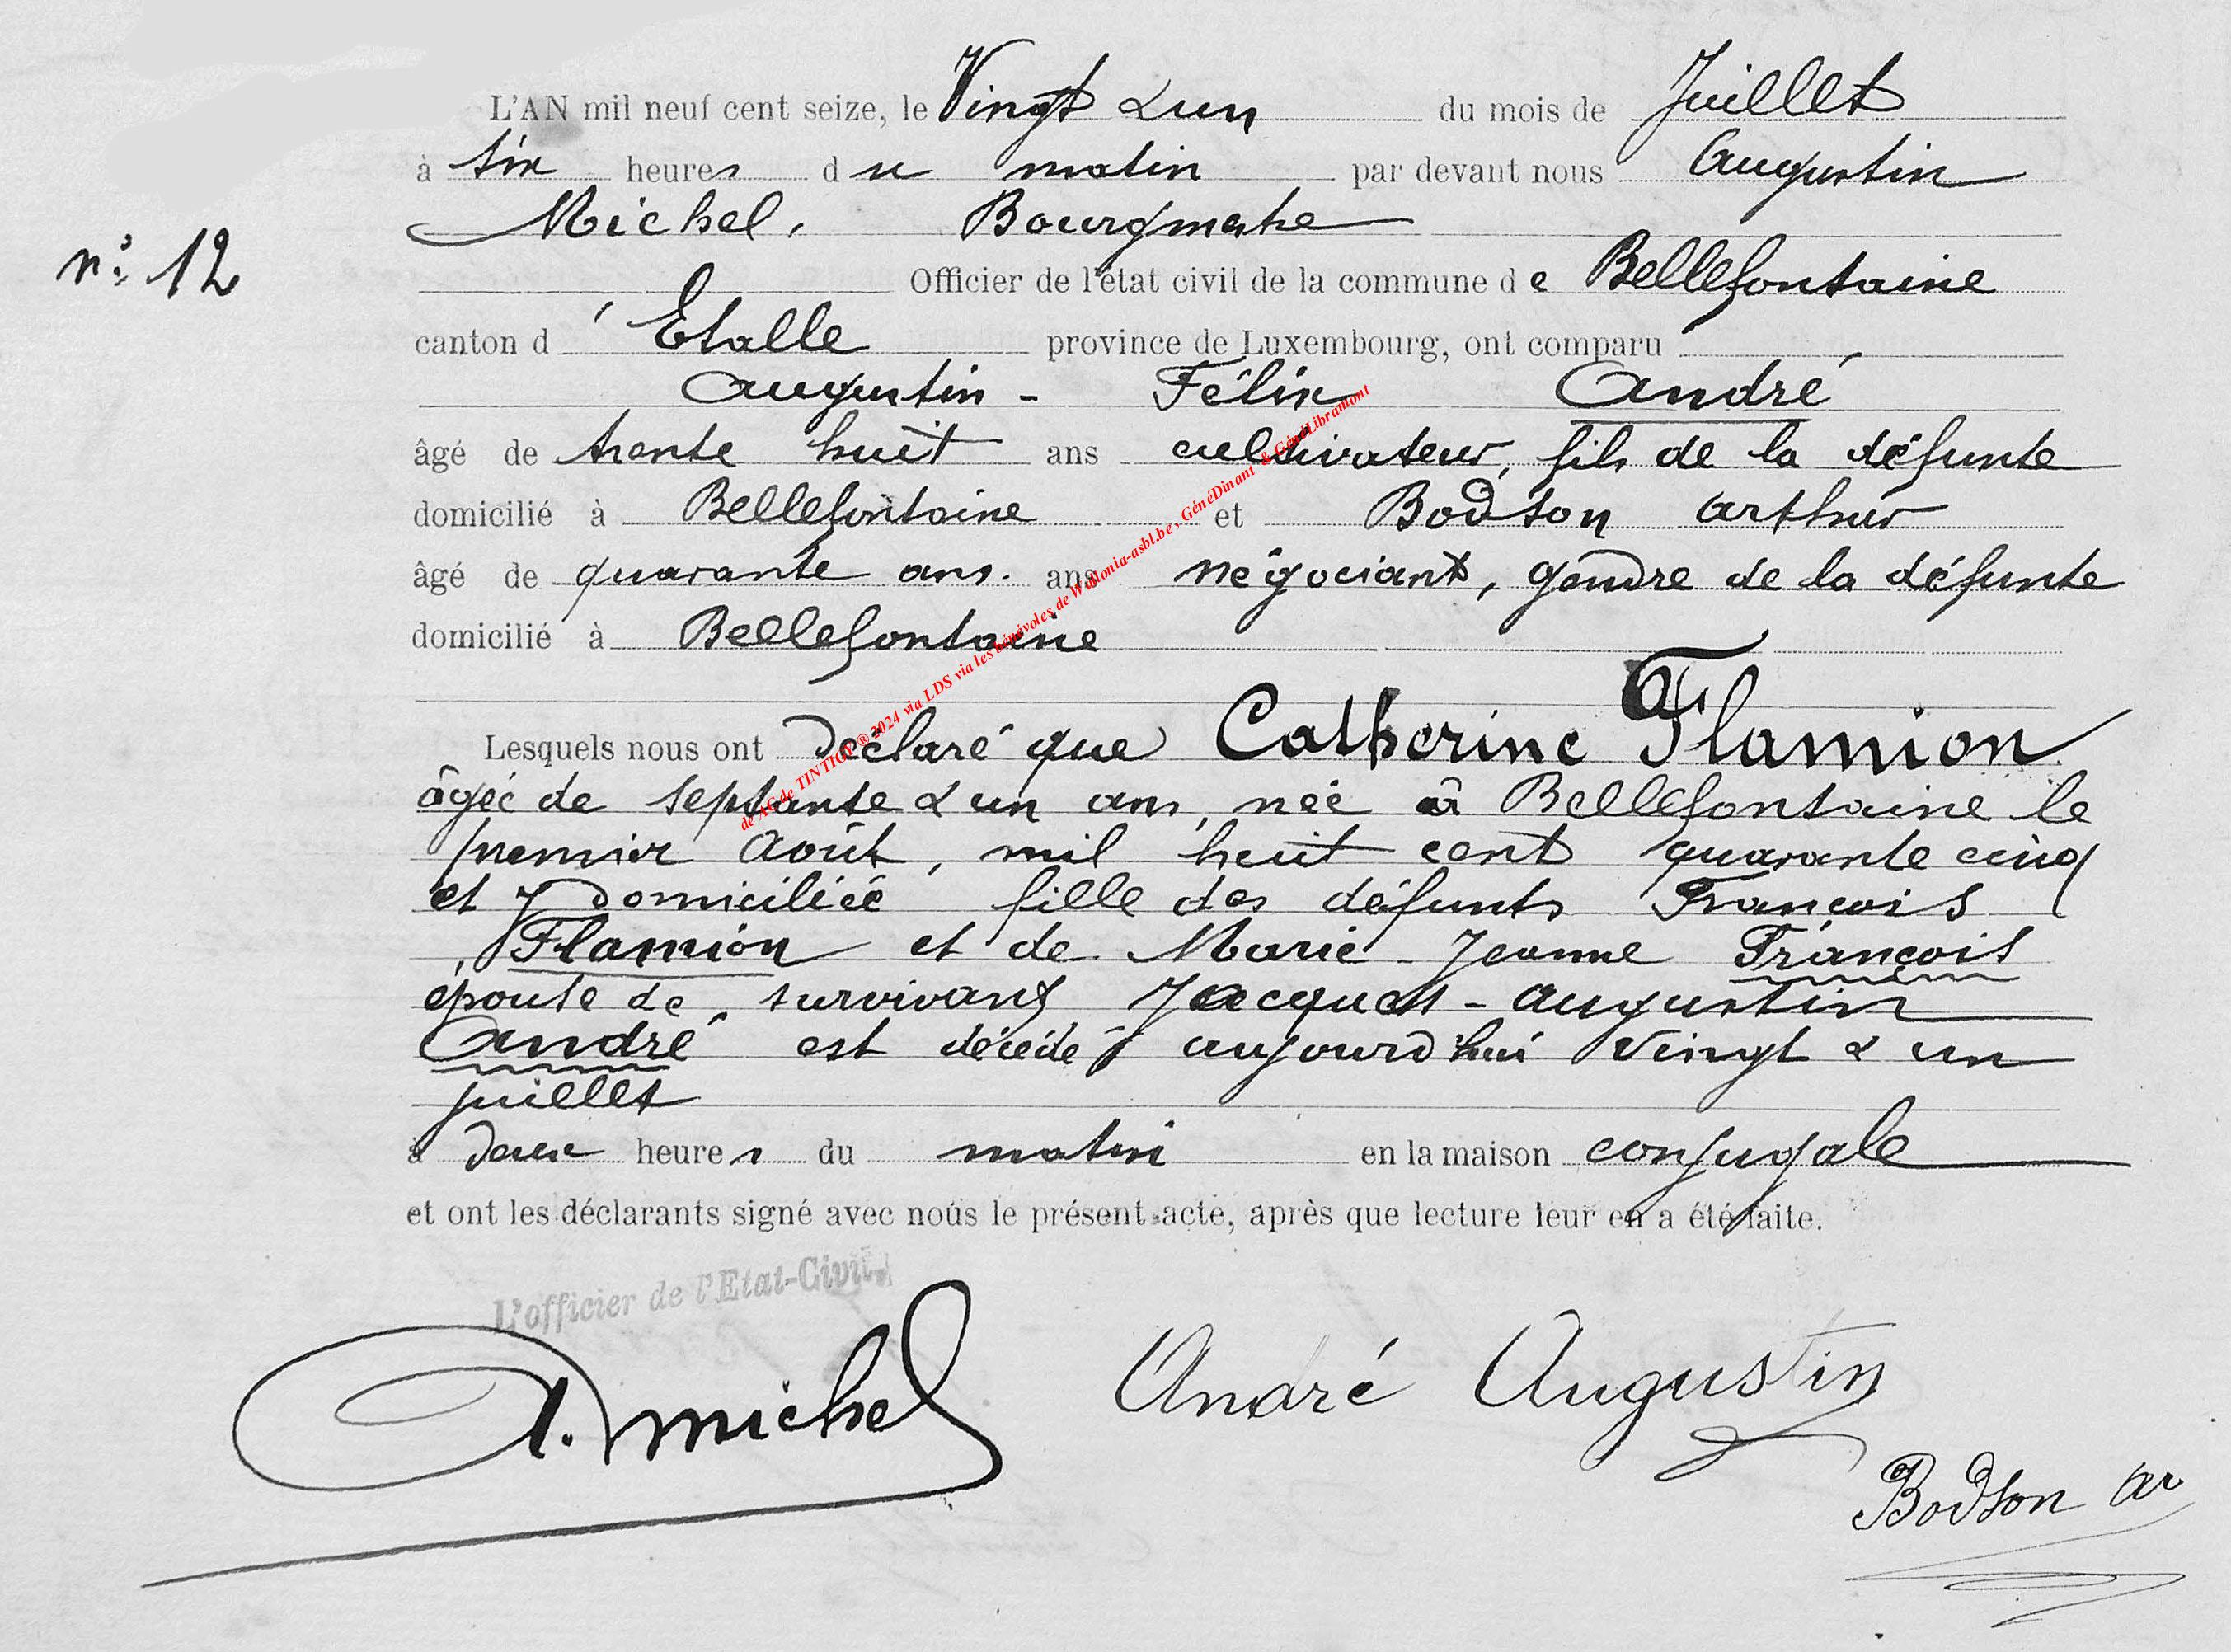 L'AN mil neuf cent seize, le Vingt & un du mois de Juillet
à six heures du matin par devant nous Augustin
Michel, Bourgmestre
n° 12
Officier de l'état civil de la commune de Bellefontaine
canton d'Etalle province de Luxembourg, ont comparu
Augustin - Félix André
âgé de trente huit ans cultivateur, fils de la défunte
domicilié à Bellefontaine et Bodson Arthur
âgé de quarante ans. ans négociant, gendre de la défunte
domicilié à Bellefontaine
Lesquels nous ont déclaré que Catherine Flamion
âgée de septante & un ans, née à Bellefontaine le
premier Août, mil huit cent quarante cinq
et y domiciliée fille des défunts François
Flamion et de Marie - Jeanne François
épouse de survivant Jacques - Augustin
André est décédé aujourd'hui Vingt & un
juillet
à deux heures du matin en la maison conjugale
et ont les déclarants signé avec nous le présent acte, après que lecture leur en a été faite.
L'officier de l'Etat-Civil,
A. Michel
André Augustin
Bodson Ar
de AC de TINTIGNY ® 2024 via LDS via les bénévoles de Wallonia-asbl.be, GénéDinant & GénéLibramont